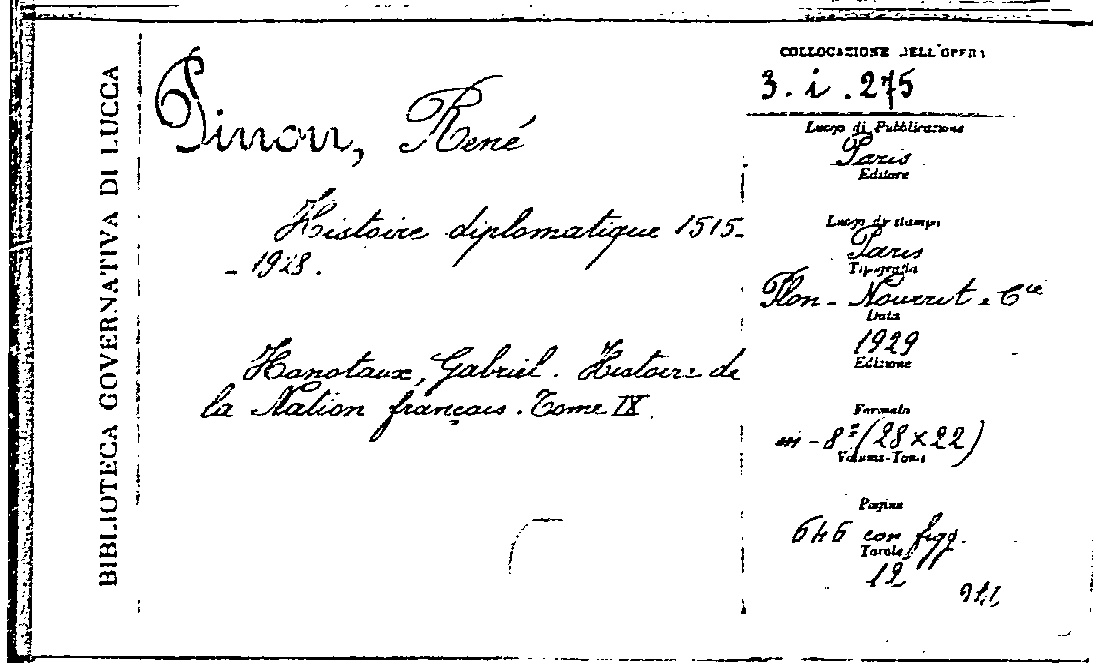 BIBLIOTECA GOVERNATIVA DI LUCCA
Pinon, René
Histoire diplomatique 1515-
- 1928.
Hanotaux, Gabriel. Histoire de
la Nation français. Tome IX.
COLLOCAZIONE DELL'OPERA
3. i. 275
Luogo di Pubblicazione
Paris
Editore
Luogo di stampa
Paris
Tipografia
Plon - Nourrit - Cie
Data
1929
Edizione
Formato
in - 8° (28 x 22)
Volume-Tomi
Pagine
646 con figg.
Tavole
12